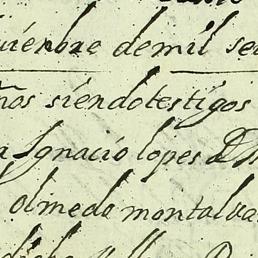 uienbre demil se
ños siendotestigos
Ignacio lopes D
olmeda montalua